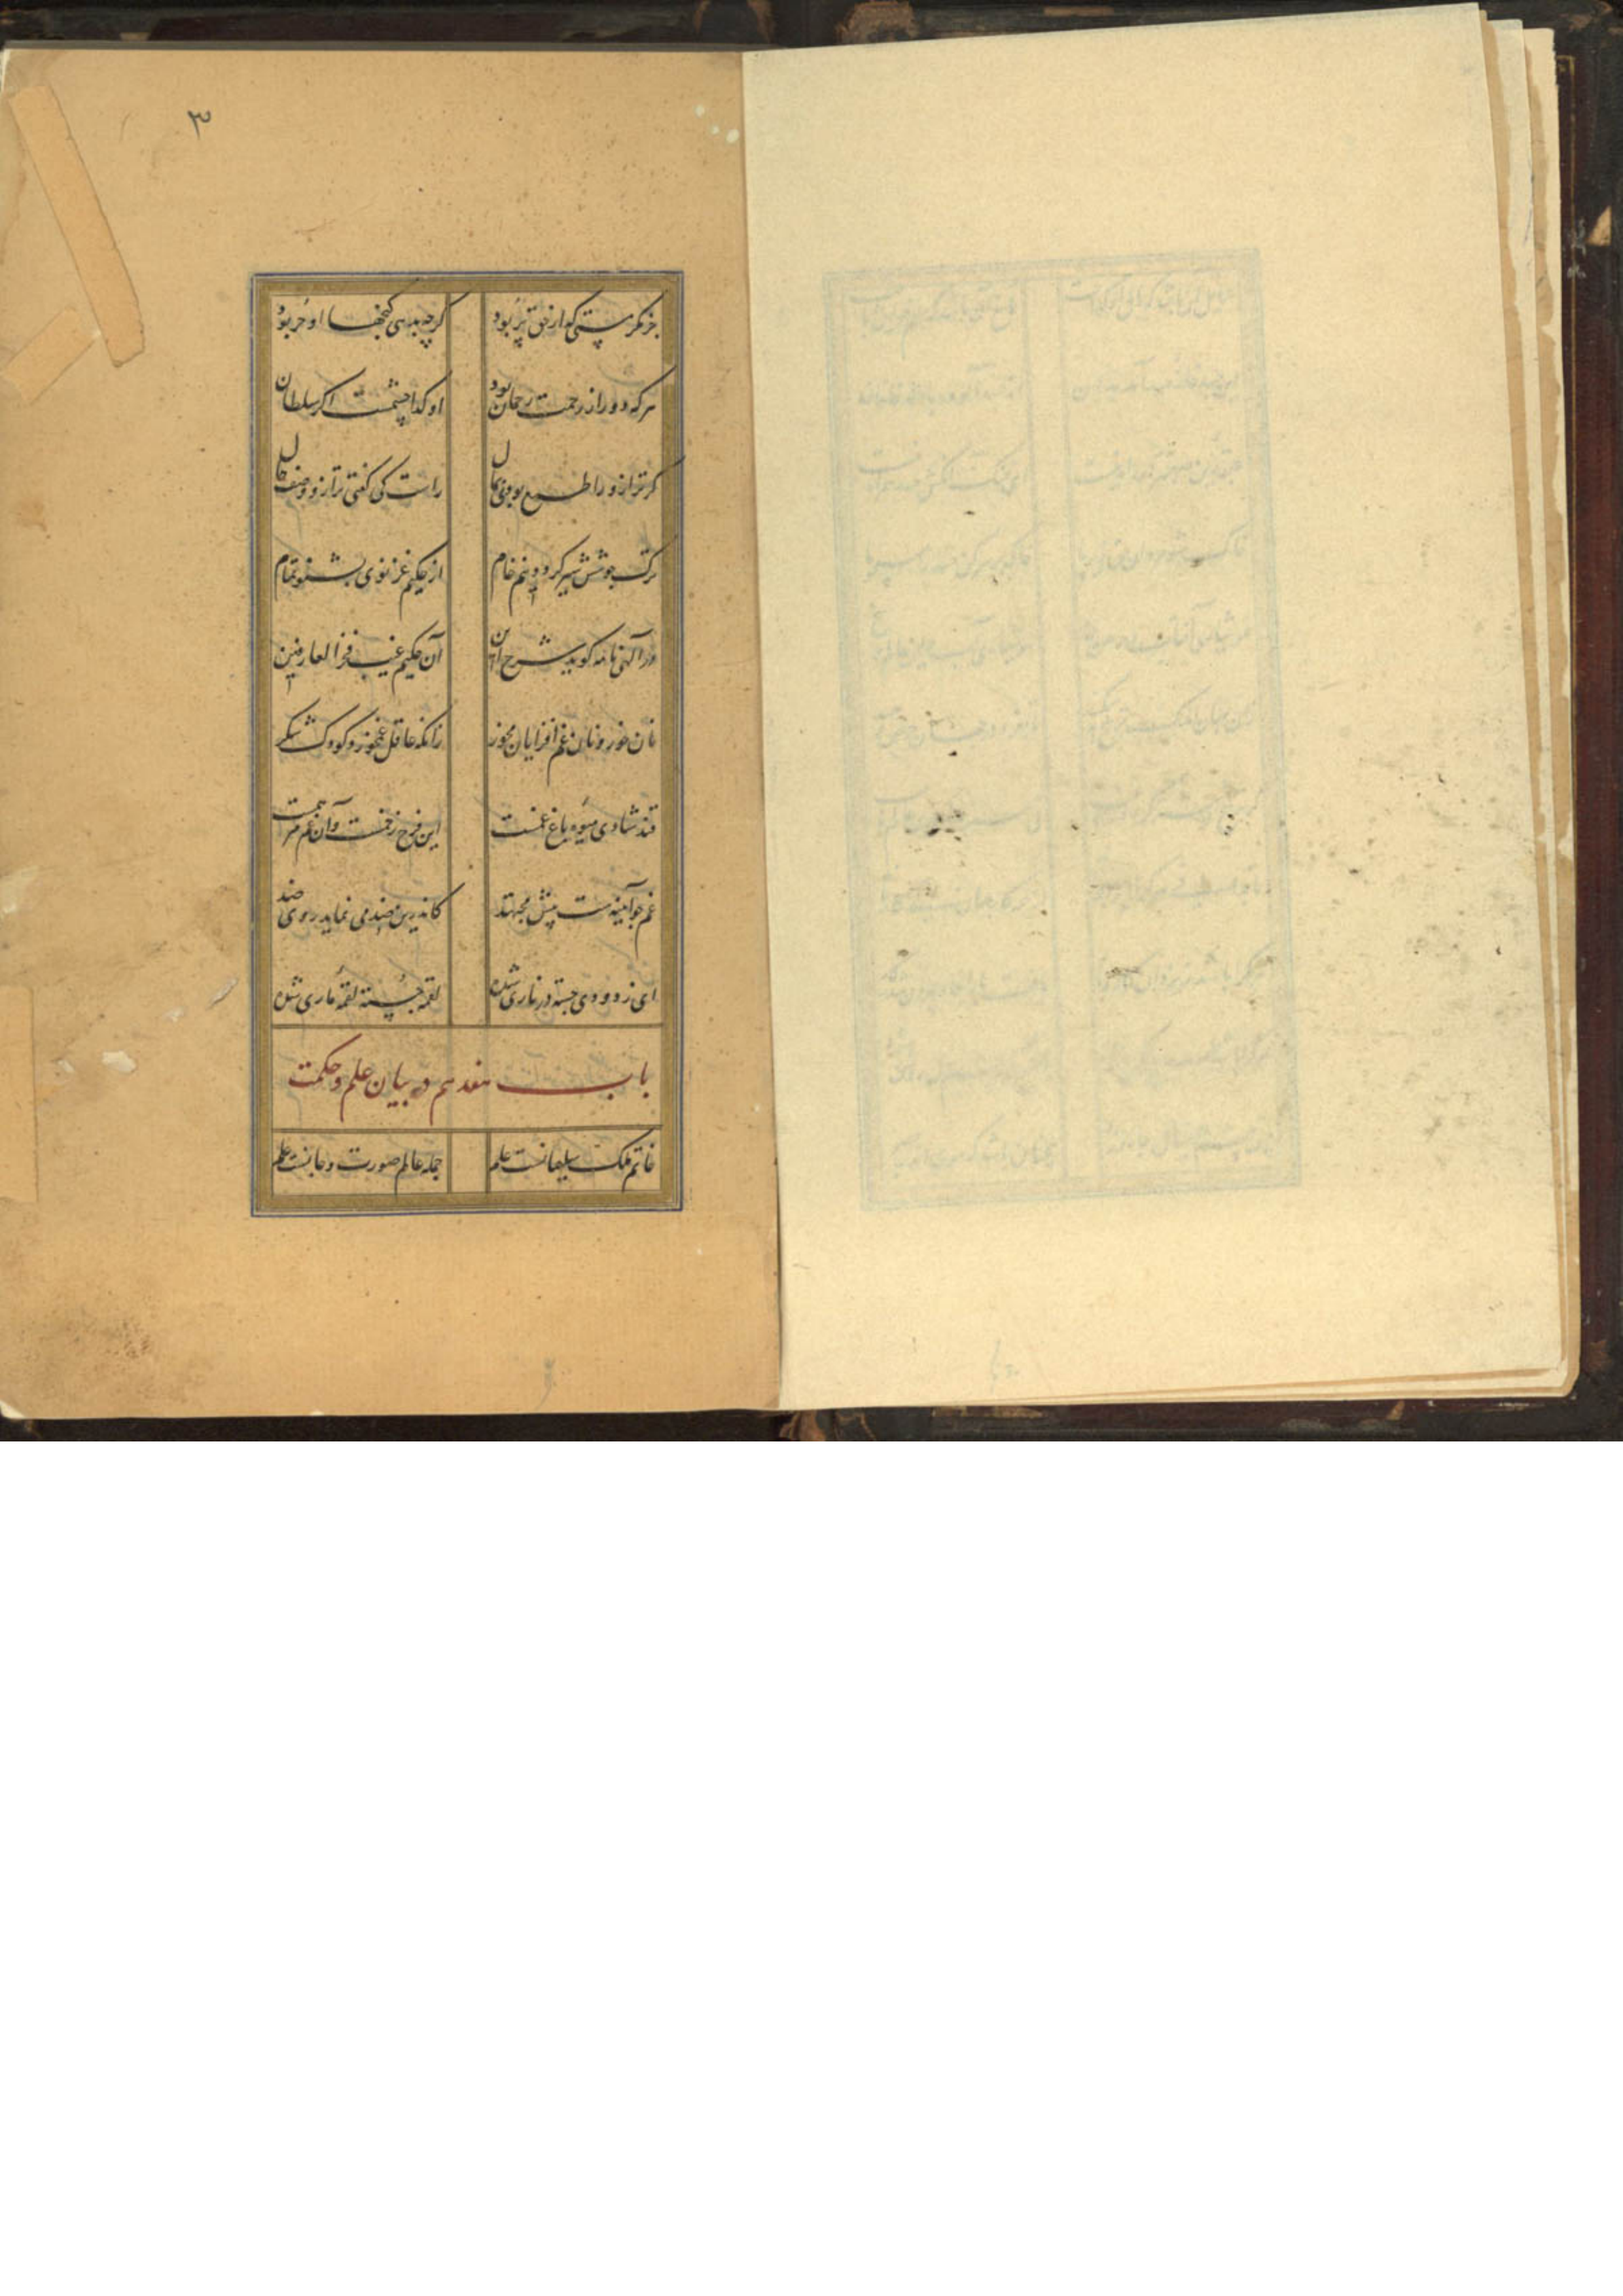 ۳
جز مکر مستی که از حق پر بود گرچه بدهی گنجها او حر بود
هر که دور از رحمت رحمان بود او گدا چشمست اگر سلطان بود
گر ترازو را طمع بودی بمال راست کی گفتی ترازو وصف حال
ترک جوشش شیر کردم نیم خام از حکیم غزنوی بشنو تمام
در الهی نامه گوید شرح این آن حکیم غیب فخر العارفین
نان خور و نان غم افزایان مخور زانکه عاقل غم خورد کودک شکر
قند شادی میوه باغ غمست این فرح زخمست و آن غم مرهمست
غم چو آیینه ست پیش مجتهد کاندرین ضد می نماید روی ضد
ای ز دودی جسته در ناری شده لقمه جسته لقمه ماری شده
باب هفدهم در بیان علم و حکمت
خاتم ملک سلیمانست علم جمله عالم صورت و جانست علم